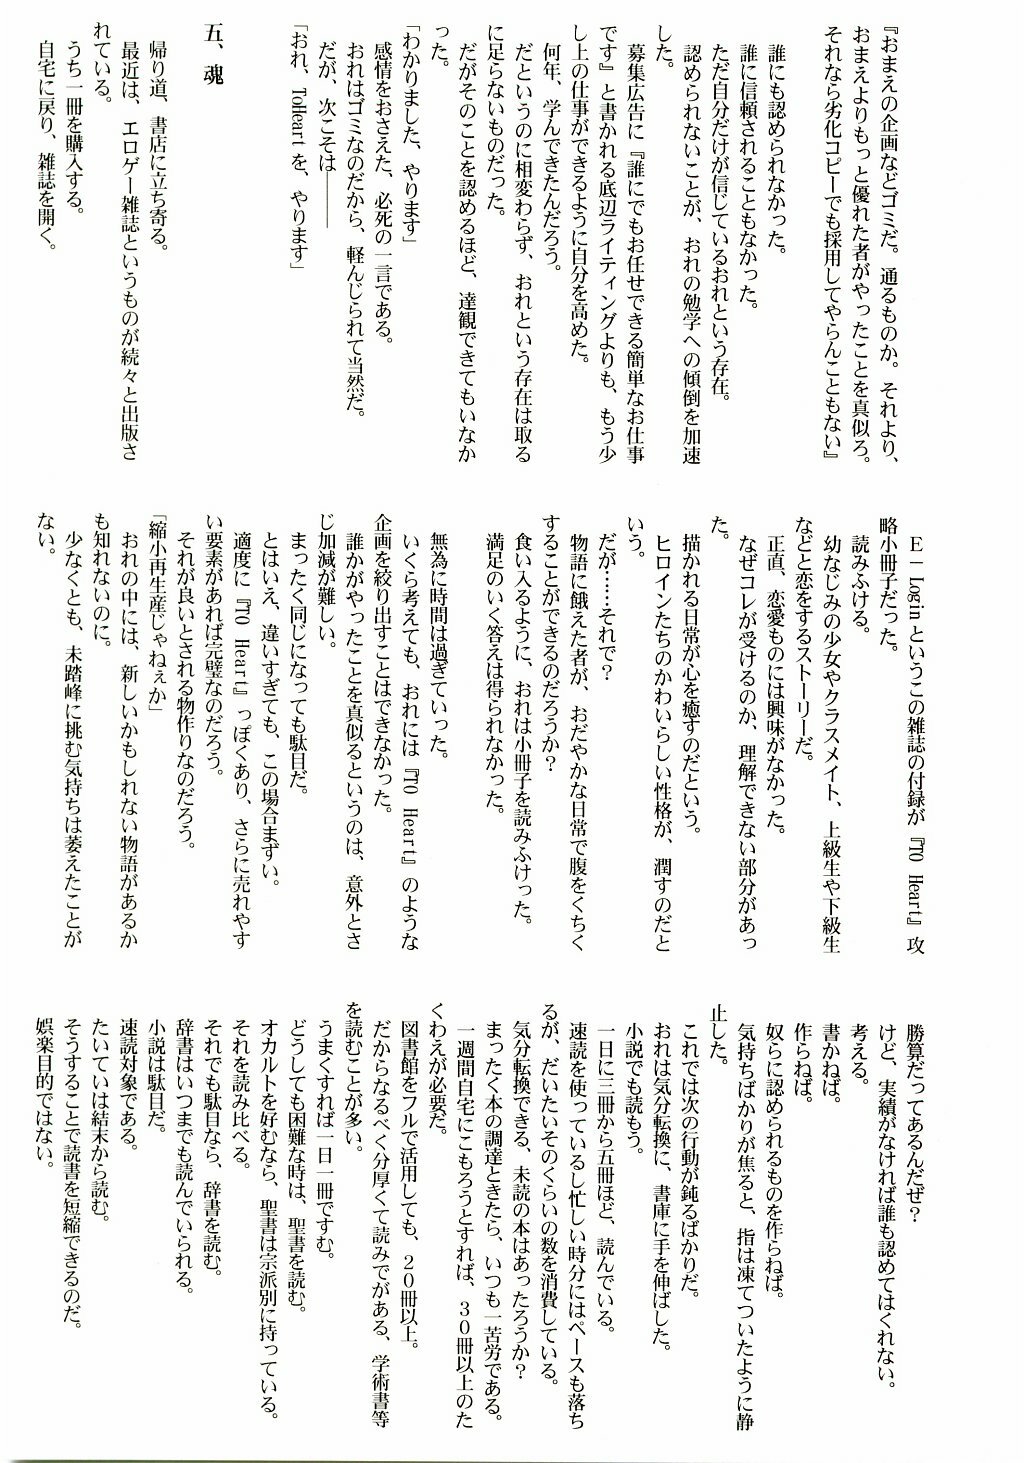 『おまえの企画などゴミだ。通るものか。それより、
おまえよりもっと優れた者がやったことを真似ろ。
それなら劣化コピーでも採用してやらんこともない』
誰にも認められなかった。
誰に信頼されることもなかった。
ただ自分だけが信じているおれという存在。
認められないことが、おれの勉学への傾倒を加速
した。
募集広告に『誰にでもお任せできる簡単なお仕事
です』と書かれる底辺ライティングよりも、もう少
し上の仕事ができるように自分を高めた。
何年、学んできたんだろう。
だというのに相変わらず、おれという存在は取る
に足らないものだった。
だがそのことを認めるほど、達観できてもいなか
った。
「わかりました、やります」
感情をおさえた、必死の一言である。
おれはゴミなのだから、軽んじられて当然だ。
だが、次こそは――――
「おれ、ToHeartを、やります」
五、魂
帰り道、書店に立ち寄る。
最近は、エロゲー雑誌というものが続々と出版さ
れている。
うち一冊を購入する。
自宅に戻り、雑誌を開く。
E－Loginというこの雑誌の付録が『TO Heart』攻
略小冊子だった。
読みふける。
幼なじみの少女やクラスメイト、上級生や下級生
などと恋をするストーリーだ。
正直、恋愛ものには興味がなかった。
なぜコレが受けるのか、理解できない部分があっ
た。
描かれる日常が心を癒すのだという。
ヒロインたちのかわいらしい性格が、潤すのだと
いう。
だが……それで？
物語に餓えた者が、おだやかな日常で腹をくちく
することができるのだろうか？
食い入るように、おれは小冊子を読みふけった。
満足のいく答えは得られなかった。
無為に時間は過ぎていった。
いくら考えても、おれには『TO Heart』のような
企画を絞り出すことはできなかった。
誰かがやったことを真似るというのは、意外とさ
じ加減が難しい。
まったく同じになっても駄目だ。
とはいえ、違いすぎても、この場合まずい。
適度に『TO Heart』っぽくあり、さらに売れやす
い要素があれば完璧なのだろう。
それが良いとされる物作りなのだろう。
「縮小再生産じゃねぇか」
おれの中には、新しいかもしれない物語があるか
も知れないのに。
少なくとも、未踏峰に挑む気持ちは萎えたことが
ない。
勝算だってあるんだぜ？
けど、実績がなければ誰も認めてはくれない。
考える。
書かねば。
作らねば。
奴らに認められるものを作らねば。
気持ちばかりが焦ると、指は凍てついたように静
止した。
これでは次の行動が鈍るばかりだ。
おれは気分転換に、書庫に手を伸ばした。
小説でも読もう。
一日に三冊から五冊ほど、読んでいる。
速読を使っているし忙しい時分にはペースも落ち
るが、だいたいそのくらいの数を消費している。
気分転換できる、未読の本はあったろうか？
まったく本の調達ときたら、いつも一苦労である。
一週間自宅にこもろうとすれば、３０冊以上のた
くわえが必要だ。
図書館をフルで活用しても、２０冊以上。
だからなるべく分厚くて読みでがある、学術書等
を読むことが多い。
うまくすれば一日一冊ですむ。
どうしても困難な時は、聖書を読む。
オカルトを好むなら、聖書は宗派別に持っている。
それを読み比べる。
それでも駄目なら、辞書を読む。
辞書はいつまでも読んでいられる。
小説は駄目だ。
速読対象である。
たいていは結末から読む。
そうすることで読書を短縮できるのだ。
娯楽目的ではない。